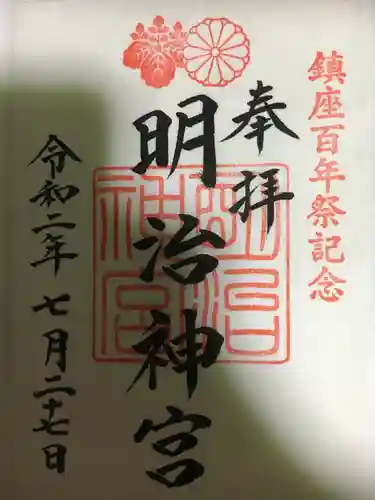 鎮座百年祭記念
奉拝
明治神宮
明治
神宮
令和二年七月二十七日